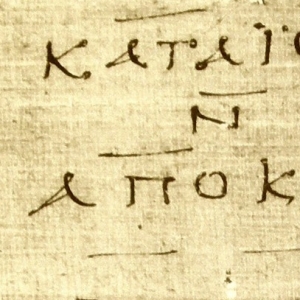 ΚΑΤΑΪ
Ν
ΑΠΟΚ